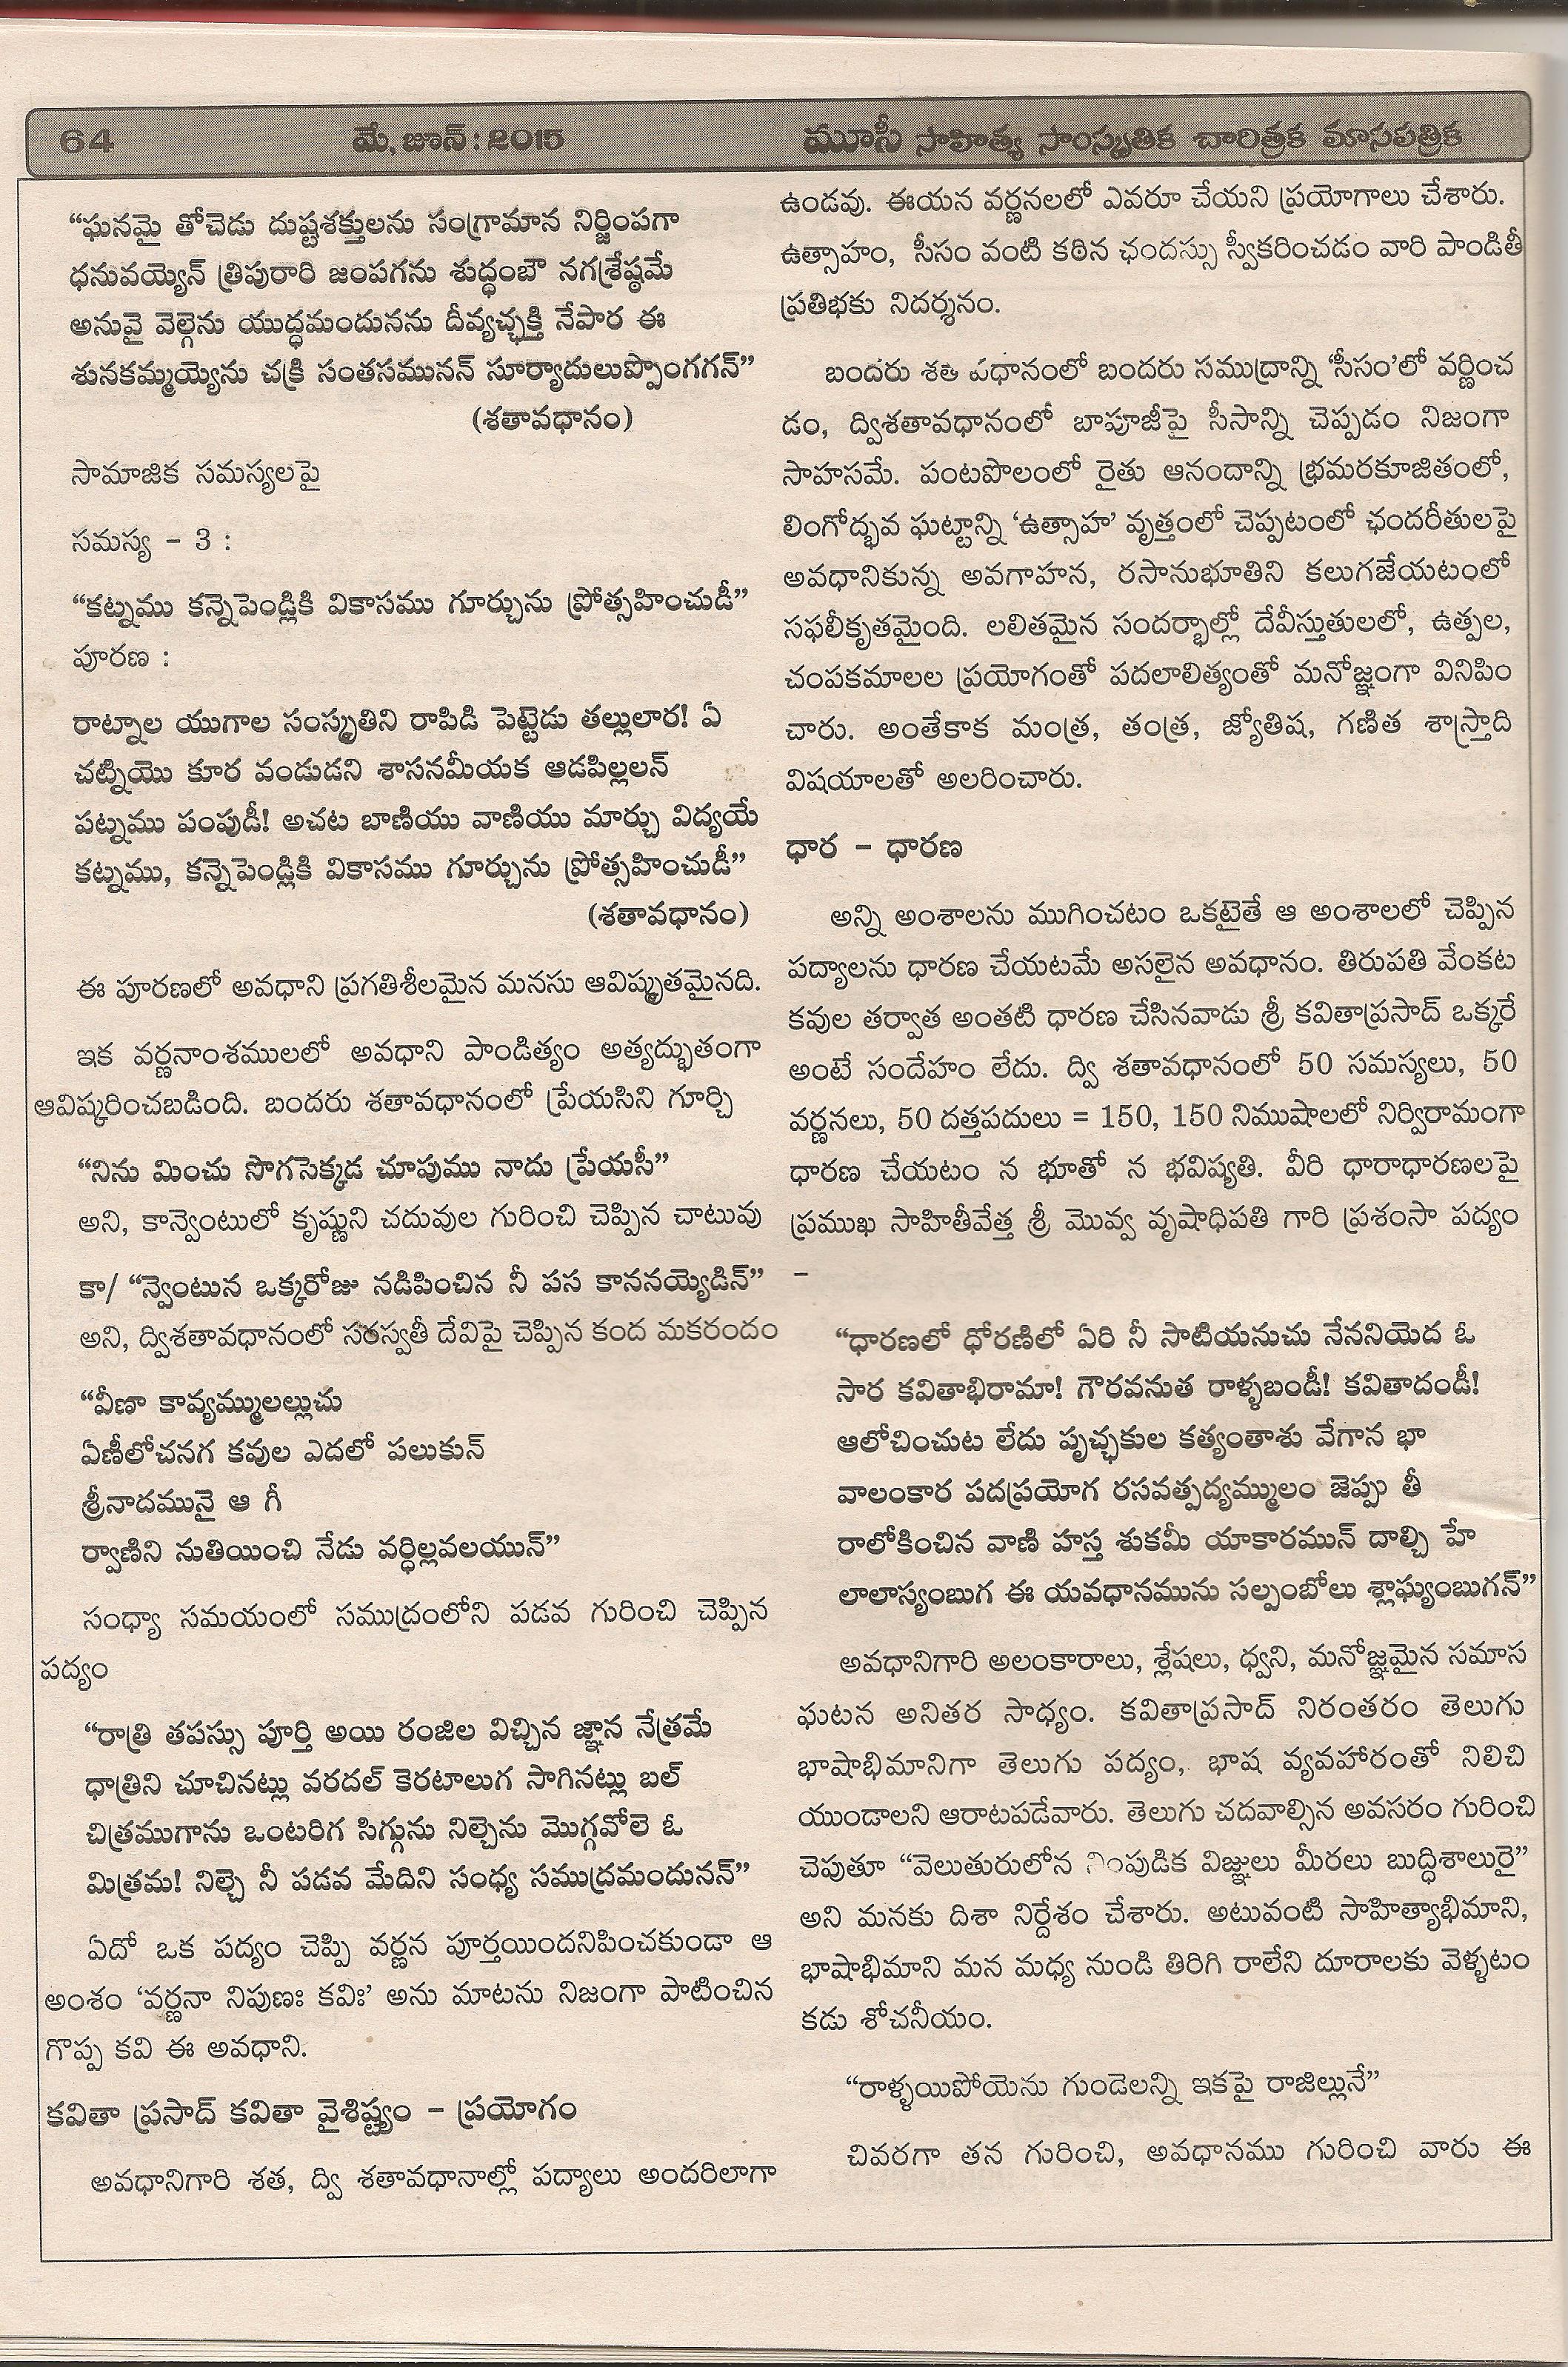 64 మే, జూన్ : 2015 మూసీ సాహిత్య సాంస్కృతిక చారిత్రక మాసపత్రిక
“ఘనమై తోచెడు దుష్టశక్తులను సంగ్రామాన నిర్జింపగా
ధనువయ్యెన్ త్రిపురారి జంపగను శుద్ధంబౌ నగశ్రేష్ఠమే
అనువై వెల్గెను యుద్ధమందునను దీవ్యచ్ఛక్తి నేపార ఈ
శునకమ్మయ్యెను చక్రి సంతసమునన్ సూర్యాదులుప్పొంగగన్”
(శతావధానం)
సామాజిక సమస్యలపై
సమస్య – 3 :
“కట్నము కన్నెపెండ్లికి వికాసము గూర్చును ప్రోత్సహించుడీ”
పూరణ :
రాట్నాల యుగాల సంస్కృతిని రాపిడి పెట్టెడు తల్లులార! ఏ
చట్నియొ కూర వండుడని శాసనమీయక ఆడపిల్లలన్
పట్నము పంపుడీ! అచట బాణియు వాణియు మార్చు విద్యయే
కట్నము, కన్నెపెండ్లికి వికాసము గూర్చును ప్రోత్సహించుడీ”
(శతావధానం)
ఈ పూరణలో అవధాని ప్రగతిశీలమైన మనసు ఆవిష్కృతమైనది.
ఇక వర్ణనాంశములలో అవధాని పాండిత్యం అత్యద్భుతంగా
ఆవిష్కరించబడింది. బందరు శతావధానంలో ప్రేయసిని గూర్చి
“నిను మించు సొగసెక్కడ చూపుము నాదు ప్రేయసీ”
అని, కాన్వెంటులో కృష్ణుని చదువుల గురించి చెప్పిన చాటువు
కా/ “న్వెంటున ఒక్కరోజు నడిపించిన నీ పస కాననయ్యెడిన్”
అని, ద్విశతావధానంలో సరస్వతీ దేవిపై చెప్పిన కంద మకరందం
“వీణా కావ్యమ్ములల్లుచు
ఏణీలోచనగ కవుల ఎదలో పలుకున్
శ్రీనాదమునై ఆ గీ
ర్వాణిని నుతియించి నేడు వర్ధిల్లవలయున్”
సంధ్యా సమయంలో సముద్రంలోని పడవ గురించి చెప్పిన
పద్యం
“రాత్రి తపస్సు పూర్తి అయి రంజిల విచ్చిన జ్ఞాన నేత్రమే
ధాత్రిని చూచినట్లు వరదల్ కెరటాలుగ సాగినట్లు బల్
చిత్రముగాను ఒంటరిగ సిగ్గును నిల్చెను మొగ్గవోలె ఓ
మిత్రమ! నిల్చె నీ పడవ మేదిని సంధ్య సముద్రమందునన్”
ఏదో ఒక పద్యం చెప్పి వర్ణన పూర్తయిందనిపించకుండా ఆ
అంశం ‘వర్ణనా నిపుణః కవిః’ అను మాటను నిజంగా పాటించిన
గొప్ప కవి ఈ అవధాని.
కవితా ప్రసాద్ కవితా వైశిష్ట్యం – ప్రయోగం
అవధానిగారి శత, ద్వి శతావధానాల్లో పద్యాలు అందరిలాగా
ఉండవు. ఈయన వర్ణనలలో ఎవరూ చేయని ప్రయోగాలు చేశారు.
ఉత్సాహం, సీసం వంటి కఠిన ఛందస్సు స్వీకరించడం వారి పాండితీ
ప్రతిభకు నిదర్శనం.
బందరు శత వధానంలో బందరు సముద్రాన్ని ‘సీసం’లో వర్ణించ
డం, ద్విశతావధానంలో బాపూజీపై సీసాన్ని చెప్పడం నిజంగా
సాహసమే. పంటపొలంలో రైతు ఆనందాన్ని భ్రమరకూజితంలో,
లింగోద్భవ ఘట్టాన్ని ‘ఉత్సాహ’ వృత్తంలో చెప్పటంలో ఛందరీతులపై
అవధానికున్న అవగాహన, రసానుభూతిని కలుగజేయటంలో
సఫలీకృతమైంది. లలితమైన సందర్భాల్లో దేవీస్తుతులలో, ఉత్పల,
చంపకమాలల ప్రయోగంతో పదలాలిత్యంతో మనోజ్ఞంగా వినిపిం
చారు. అంతేకాక మంత్ర, తంత్ర, జ్యోతిష, గణిత శాస్త్రాది
విషయాలతో అలరించారు.
ధార – ధారణ
అన్ని అంశాలను ముగించటం ఒకటైతే ఆ అంశాలలో చెప్పిన
పద్యాలను ధారణ చేయటమే అసలైన అవధానం. తిరుపతి వేంకట
కవుల తర్వాత అంతటి ధారణ చేసినవాడు శ్రీ కవితాప్రసాద్ ఒక్కరే
అంటే సందేహం లేదు. ద్వి శతావధానంలో 50 సమస్యలు, 50
వర్ణనలు, 50 దత్తపదులు = 150, 150 నిముషాలలో నిర్విరామంగా
ధారణ చేయటం న భూతో న భవిష్యతి. వీరి ధారాధారణలపై
ప్రముఖ సాహితీవేత్త శ్రీ మొవ్వ వృషాధిపతి గారి ప్రశంసా పద్యం
–
“ధారణలో ధోరణిలో ఏరి నీ సాటియనుచు నేననియెద ఓ
సార కవితాభిరామా! గౌరవనుత రాళ్ళబండీ! కవితాదండీ!
ఆలోచించుట లేదు పృచ్ఛకుల కత్యంతాశు వేగాన భా
వాలంకార పదప్రయోగ రసవత్పద్యమ్ములం జెప్పు తీ
రాలోకించిన వాణి హస్త శుకమీ యాకారమున్ దాల్చి హే
లాలాస్యంబుగ ఈ యవధానమును సల్పంబోలు శ్లాఘ్యంబుగన్”
అవధానిగారి అలంకారాలు, శ్లేషలు, ధ్వని, మనోజ్ఞమైన సమాస
ఘటన అనితర సాధ్యం. కవితాప్రసాద్ నిరంతరం తెలుగు
భాషాభిమానిగా తెలుగు పద్యం, భాష వ్యవహారంతో నిలిచి
యుండాలని ఆరాటపడేవారు. తెలుగు చదవాల్సిన అవసరం గురించి
చెపుతూ “వెలుతురులోన నింపుడిక విజ్ఞులు మీరలు బుద్ధిశాలురై”
అని మనకు దిశా నిర్దేశం చేశారు. అటువంటి సాహిత్యాభిమాని,
భాషాభిమాని మన మధ్య నుండి తిరిగి రాలేని దూరాలకు వెళ్ళటం
కడు శోచనీయం.
“రాళ్ళయిపోయెను గుండెలన్ని ఇకపై రాజిల్లునే”
చివరగా తన గురించి, అవధానము గురించి వారు ఈ